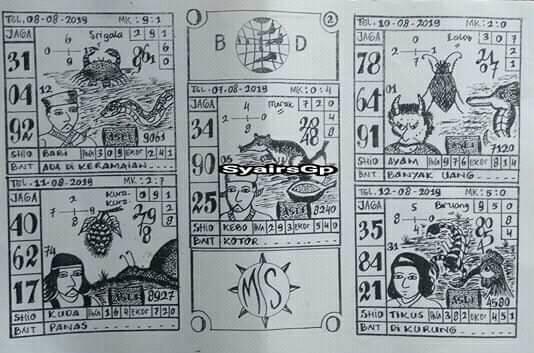 TGL. 08-08-2019 MK: 9:1
JAGA
Srigala
2 9 1
31
04
92
12
ASLI 9061
SHIO BABI INA 3 0 9 EKOR 2 4 1
BNT ADA DI KERAMAIAN
B D
2
TGL. 07-08-2019 MK: 0:4
JAGA
7 2 0
34
90
25
SyairsGp
ASLI 8240
SHIO KEBO INA 2 9 3 EKOR 5 4 0
BNT KOTOR
MS
TGL. 10-08-2019 MK: 2:0
JAGA
3 0 7
78
64
91
01
ASLI 7120
SHIO AYAM INA 9 7 6 EKOR 8 1 4
BNT BANYAK UANG
TGL. 11-08-2019 MK: 2:7
JAGA
Kura-
Kura
0 9 1
40
62
17
74
ASLI 8927
SHIO KUDA INA 1 6 9 EKOR 7 2 0
BNT PANAS
TGL. 12-08-2019 MK: 5:0
JAGA
Burung
9 5 0
35
84
21
31
ASLI 4580
SHIO TIKUS INA 3 8 2 EKOR 4 5 1
BNT DI KURUNG